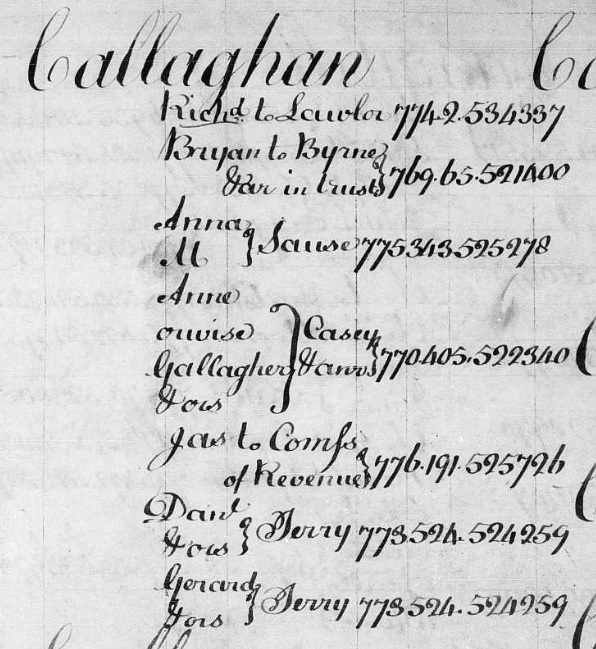 Callaghan
Richd to Lawlor 774.2.534337
Bryan to Byrne
& ar in trust 769.65.521400
Anna
M Sause 775 343 525278
Anne
orwise Casey
Gallagher & anr 770.405.522340
& ors
Jas to Comrs
of Revenue 776.191.525726
Danl
& ors Perry 773.524.524259
Gerard
& ors Perry 773.524.524259